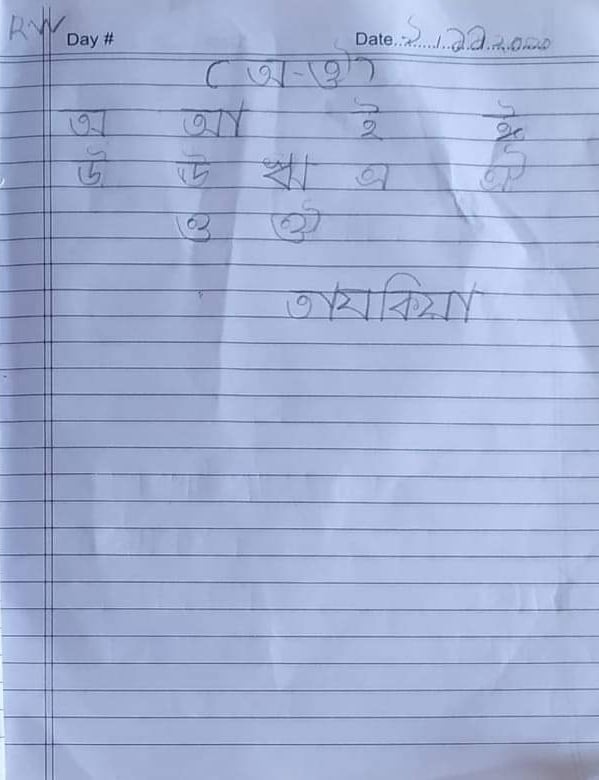 RW
Day # Date..২.../..১১..২০২০
( অ-ঔ )
অ আ ই ঈ
উ ঊ ঋ এ ঐ
ও ঔ
তাযকিয়া